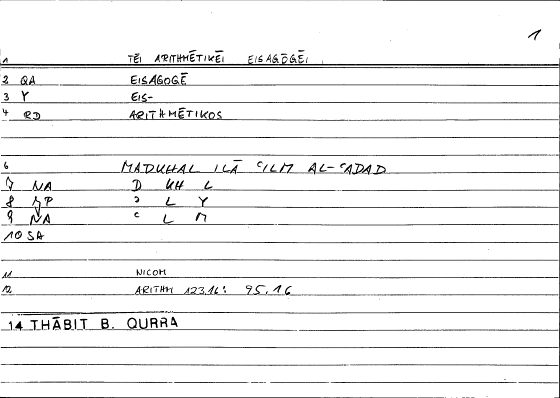 1
1 TĒI ARITHMĒTIKĒI EISAGŌGĒI
2 QA EISAGOGĒ
3 Y EIS-
4 RD ARITHMĒTIKOS
6 MADUKHAL ILĀ ʿILM AL-ʿADAD
7 NA D KH L
8 ʾ L Y
9 NA ʿ L M
10 SA
11 NICOM
12 ARITHM 123,16: 95,16
14 THĀBIT B. QURRA